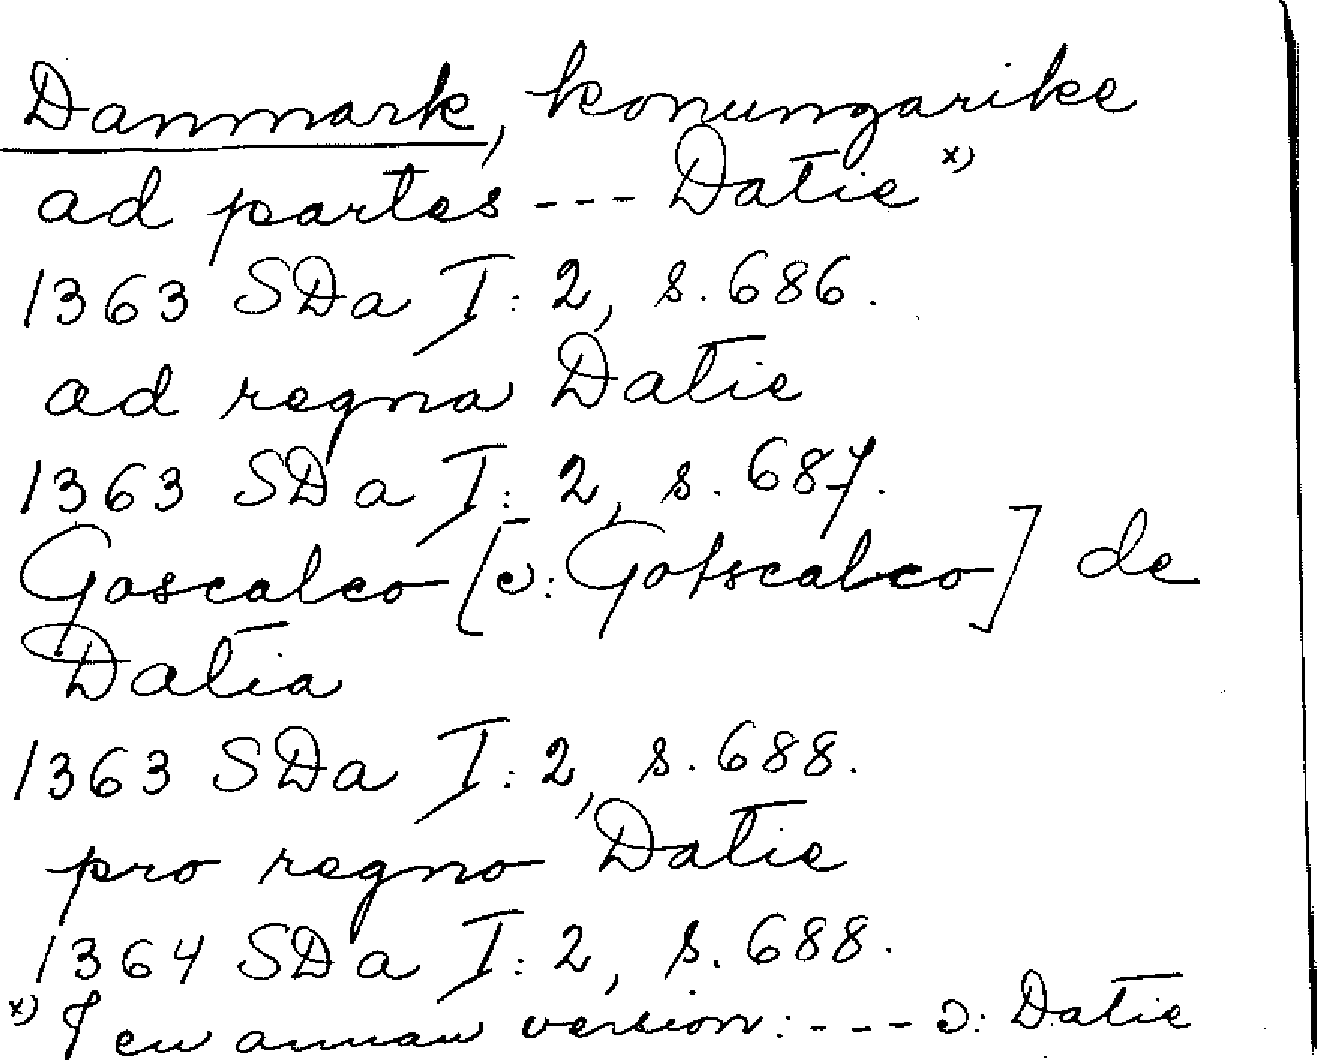 Danmark, konungarike
ad partes --- Datie x)
1363 SDa I: 2, s. 686.
ad regna Datie
1363 SDa I: 2, s. 687.
Goscalco [ɔ: Gotscalco] de
Datia
1363 SDa I: 2, s. 688.
pro regno Datie
1364 SDa I: 2, s. 688.
x) I en annan version: --- ɔ: Datie